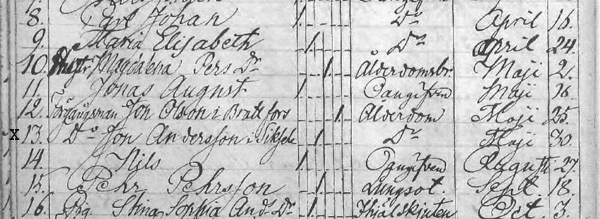 8. Carl Johan 1 Do April 16.
9. Maria Elisabeth 1 Do April 24.
10. Magdalena Pers Dr 1 Ålderdomsbr. Maji 2.
11. Jonas August 1 Oangifven Maji 16
12. Jon Olsson i Brattfors 1 Ålderdom Maji 25.
x 13. Do Jon Andersson i 1 Do Maji 30.
14 Nils 1 Oangifven Augusti 27.
15. Pehr Pehrsson 1 Lungsot. Sept 18.
16. Pig Stina Sophia And. Dr 1 Oct 3.